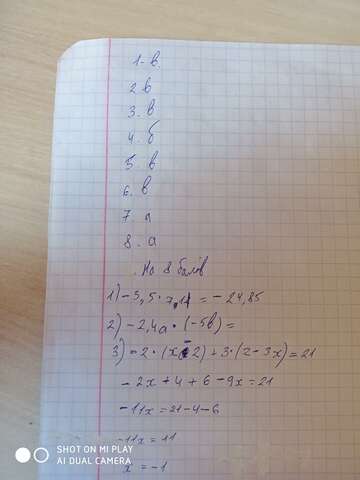 1-в.
2 в
3. в
4. б
5 в
6. в
7. а
8. а
. На 8 балів
1) -3,5 · 7,1 = -24,85
2) -2,4а · (-5в) =
3) -2 · (х-2) + 3 · (2-3х) = 21
-2х + 4 + 6 - 9х = 21
-11х = 21-4-6
-11х = 11
х = -1
SHOT ON MI PLAY
AI DUAL CAMERA